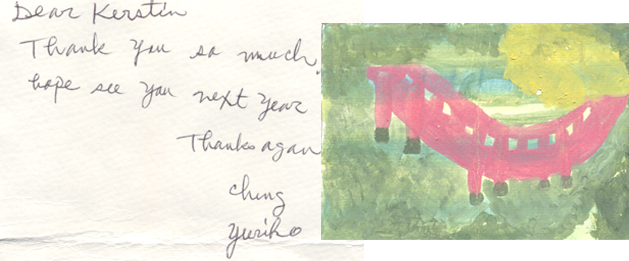 Dear Kerstin
Thank you so much.
hope see you next year
Thanks again
Ching
Yuriko